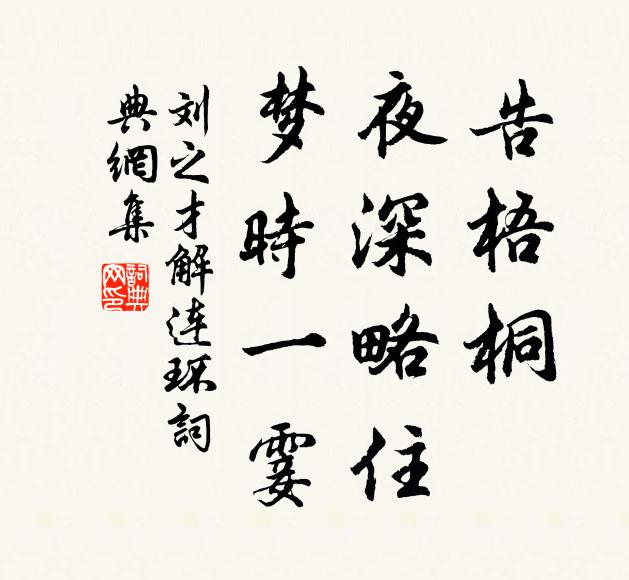 告梧桐
夜深略住
梦時一霎
刘之才解连环詞
典網集
詞典
网印